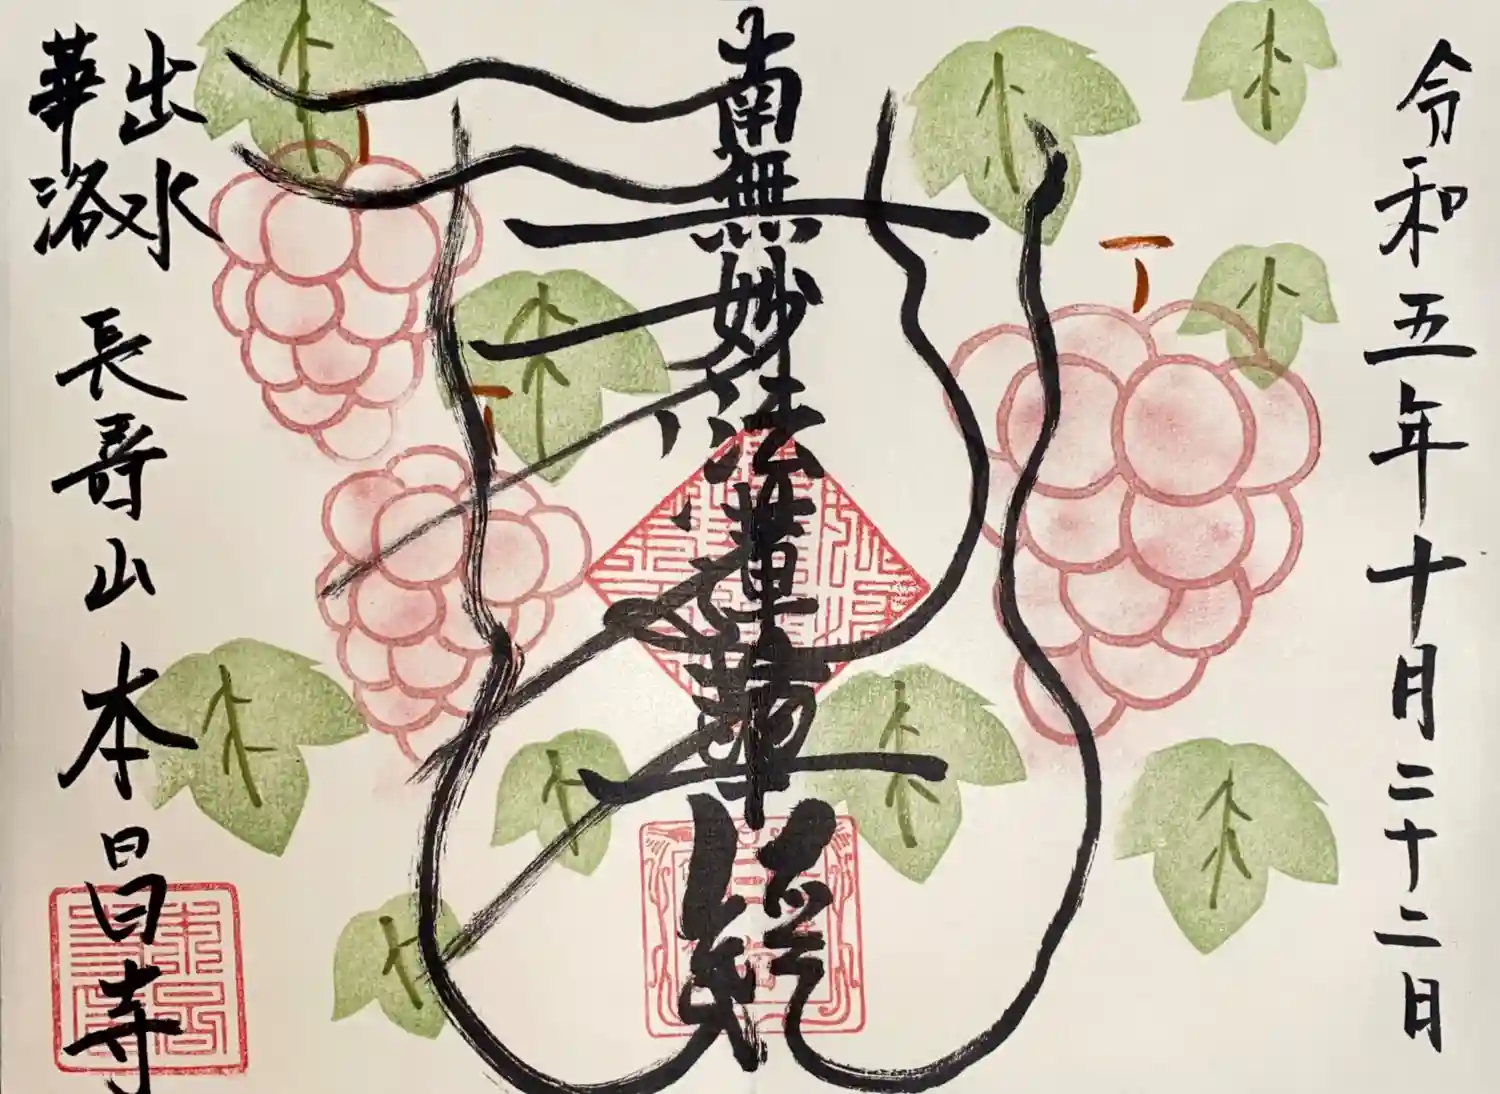 令和五年十月二十二日
南無妙法蓮華経
華洛
出水
長壽山
本昌寺